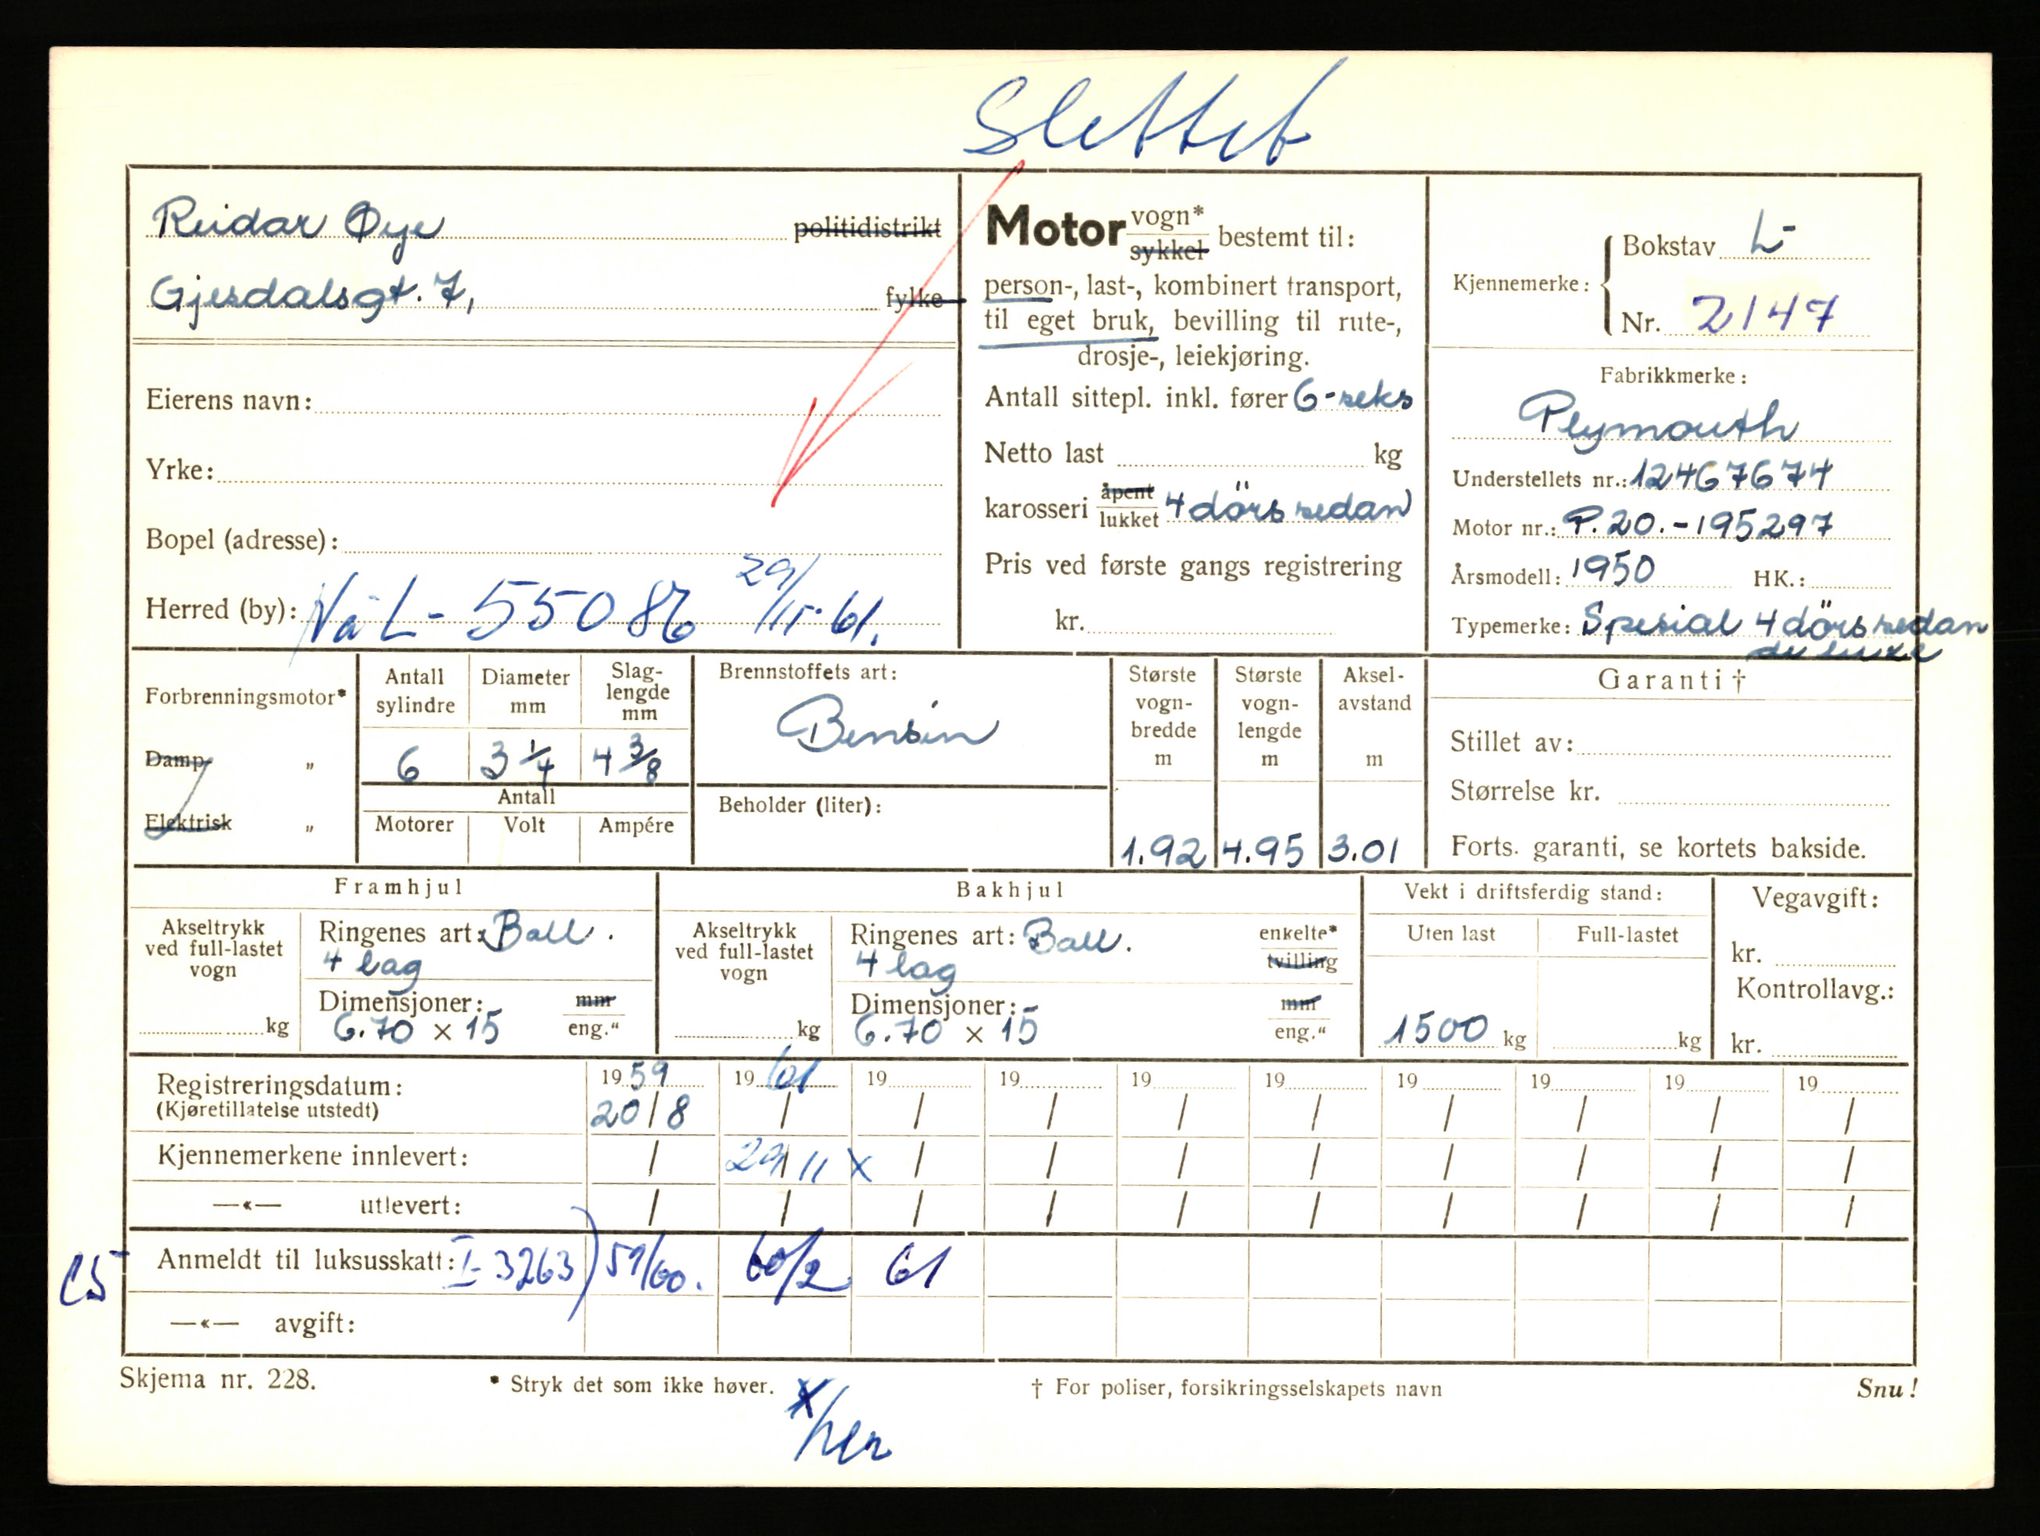 Slettet
Reidar Øye politidistrikt
Gjesdalsgt. 7, fylke
Eierens navn:
Yrke:
Bopel (adresse):
Herred (by): Nå L- 55086 29/11-61.
Motor vogn*
sykkel bestemt til:
person-, last-, kombinert transport,
til eget bruk, bevilling til rute-,
drosje-, leiekjøring.
Antall sittepl. inkl. fører 6-seks
Netto last kg
karosseri åpent
lukket 4 dörs sedan
Pris ved første gangs registrering
kr.
Kjennemerke: Bokstav L-
Nr. 2147
Fabrikkmerke:
Plymouth
Understellets nr.: 12467674
Motor nr.: P. 20.-195297
Årsmodell: 1950 HK.:
Typemerke: Spesial 4 dörs sedan
de luxe
Forbrenningsmotor*
Damp "
Elektrisk "
Antall sylindre
Diameter mm
Slag-
lengde
mm
6 3 1/4 4 3/8
Antall
Motorer Volt Ampére
Brennstoffets art:
Bensin
Beholder (liter):
Største
vogn-
bredde
m
1.92
Største
vogn-
lengde
m
4.95
Aksel-
avstand
m
3.01
Garanti †
Stillet av:
Størrelse kr.
Forts. garanti, se kortets bakside.
Framhjul
Akseltrykk
ved full-lastet
vogn
kg
Ringenes art: Ball.
4 lag
Dimensjoner: mm
6.70 x 15 eng."
Bakhjul
Akseltrykk
ved full-lastet
vogn
kg
Ringenes art: Ball. enkelte*
4 lag tvilling
Dimensjoner: mm
6.70 x 15 eng."
Vekt i driftsferdig stand:
Uten last Full-lastet
1500 kg kg
Vegavgift:
kr.
Kontrollavg.:
kr.
Registreringsdatum: 1959 1961 19 19 19 19 19 19 19 19
(Kjøretillatelse utstedt) 20/8 / / / / / / / / /
Kjennemerkene innlevert: / 29/11 x / / / / / / / /
—«— utlevert: / / / / / / / / / /
C5 Anmeldt til luksusskatt: I-3263) 59/60. 60/2 61
—«— avgift:
Skjema nr. 228. * Stryk det som ikke høver. † For poliser, forsikringsselskapets navn Snu!